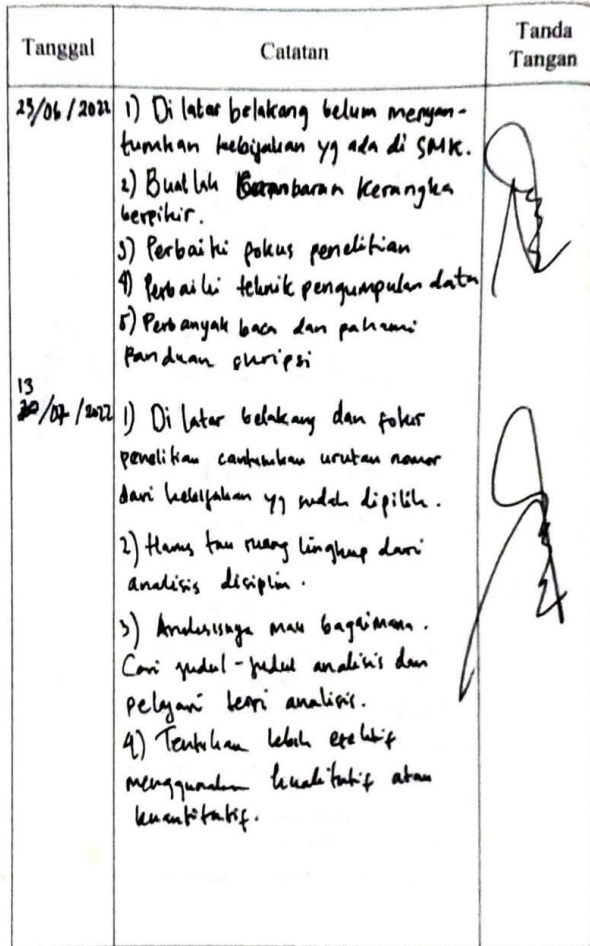 Tanggal
Catatan
Tanda
Tangan
23/06/2022
1) Di latar belakang belum menyan-
tumkan kebijakan yg ada di SMK.
2) Buatlah Gambaran kerangka
berpikir.
3) Perbaiki fokus penelitian
4) Perbaiki teknik pengumpulan data
5) Perbanyak baca dan pahami
Panduan skripsi
13
/07/2022
1) Di latar belakang dan fokus
penelitian cantumkan urutan nomor
dari kebijakan yg sudah dipilih.
2) Harus tau ruang lingkup dari
analisis disiplin.
3) Analisisnya mau bagaimana.
Cari judul-judul analisis dan
pelajari teori analisis.
4) Tentukan lebih efektif
menggunakan kualitatif atau
kuantitatif.